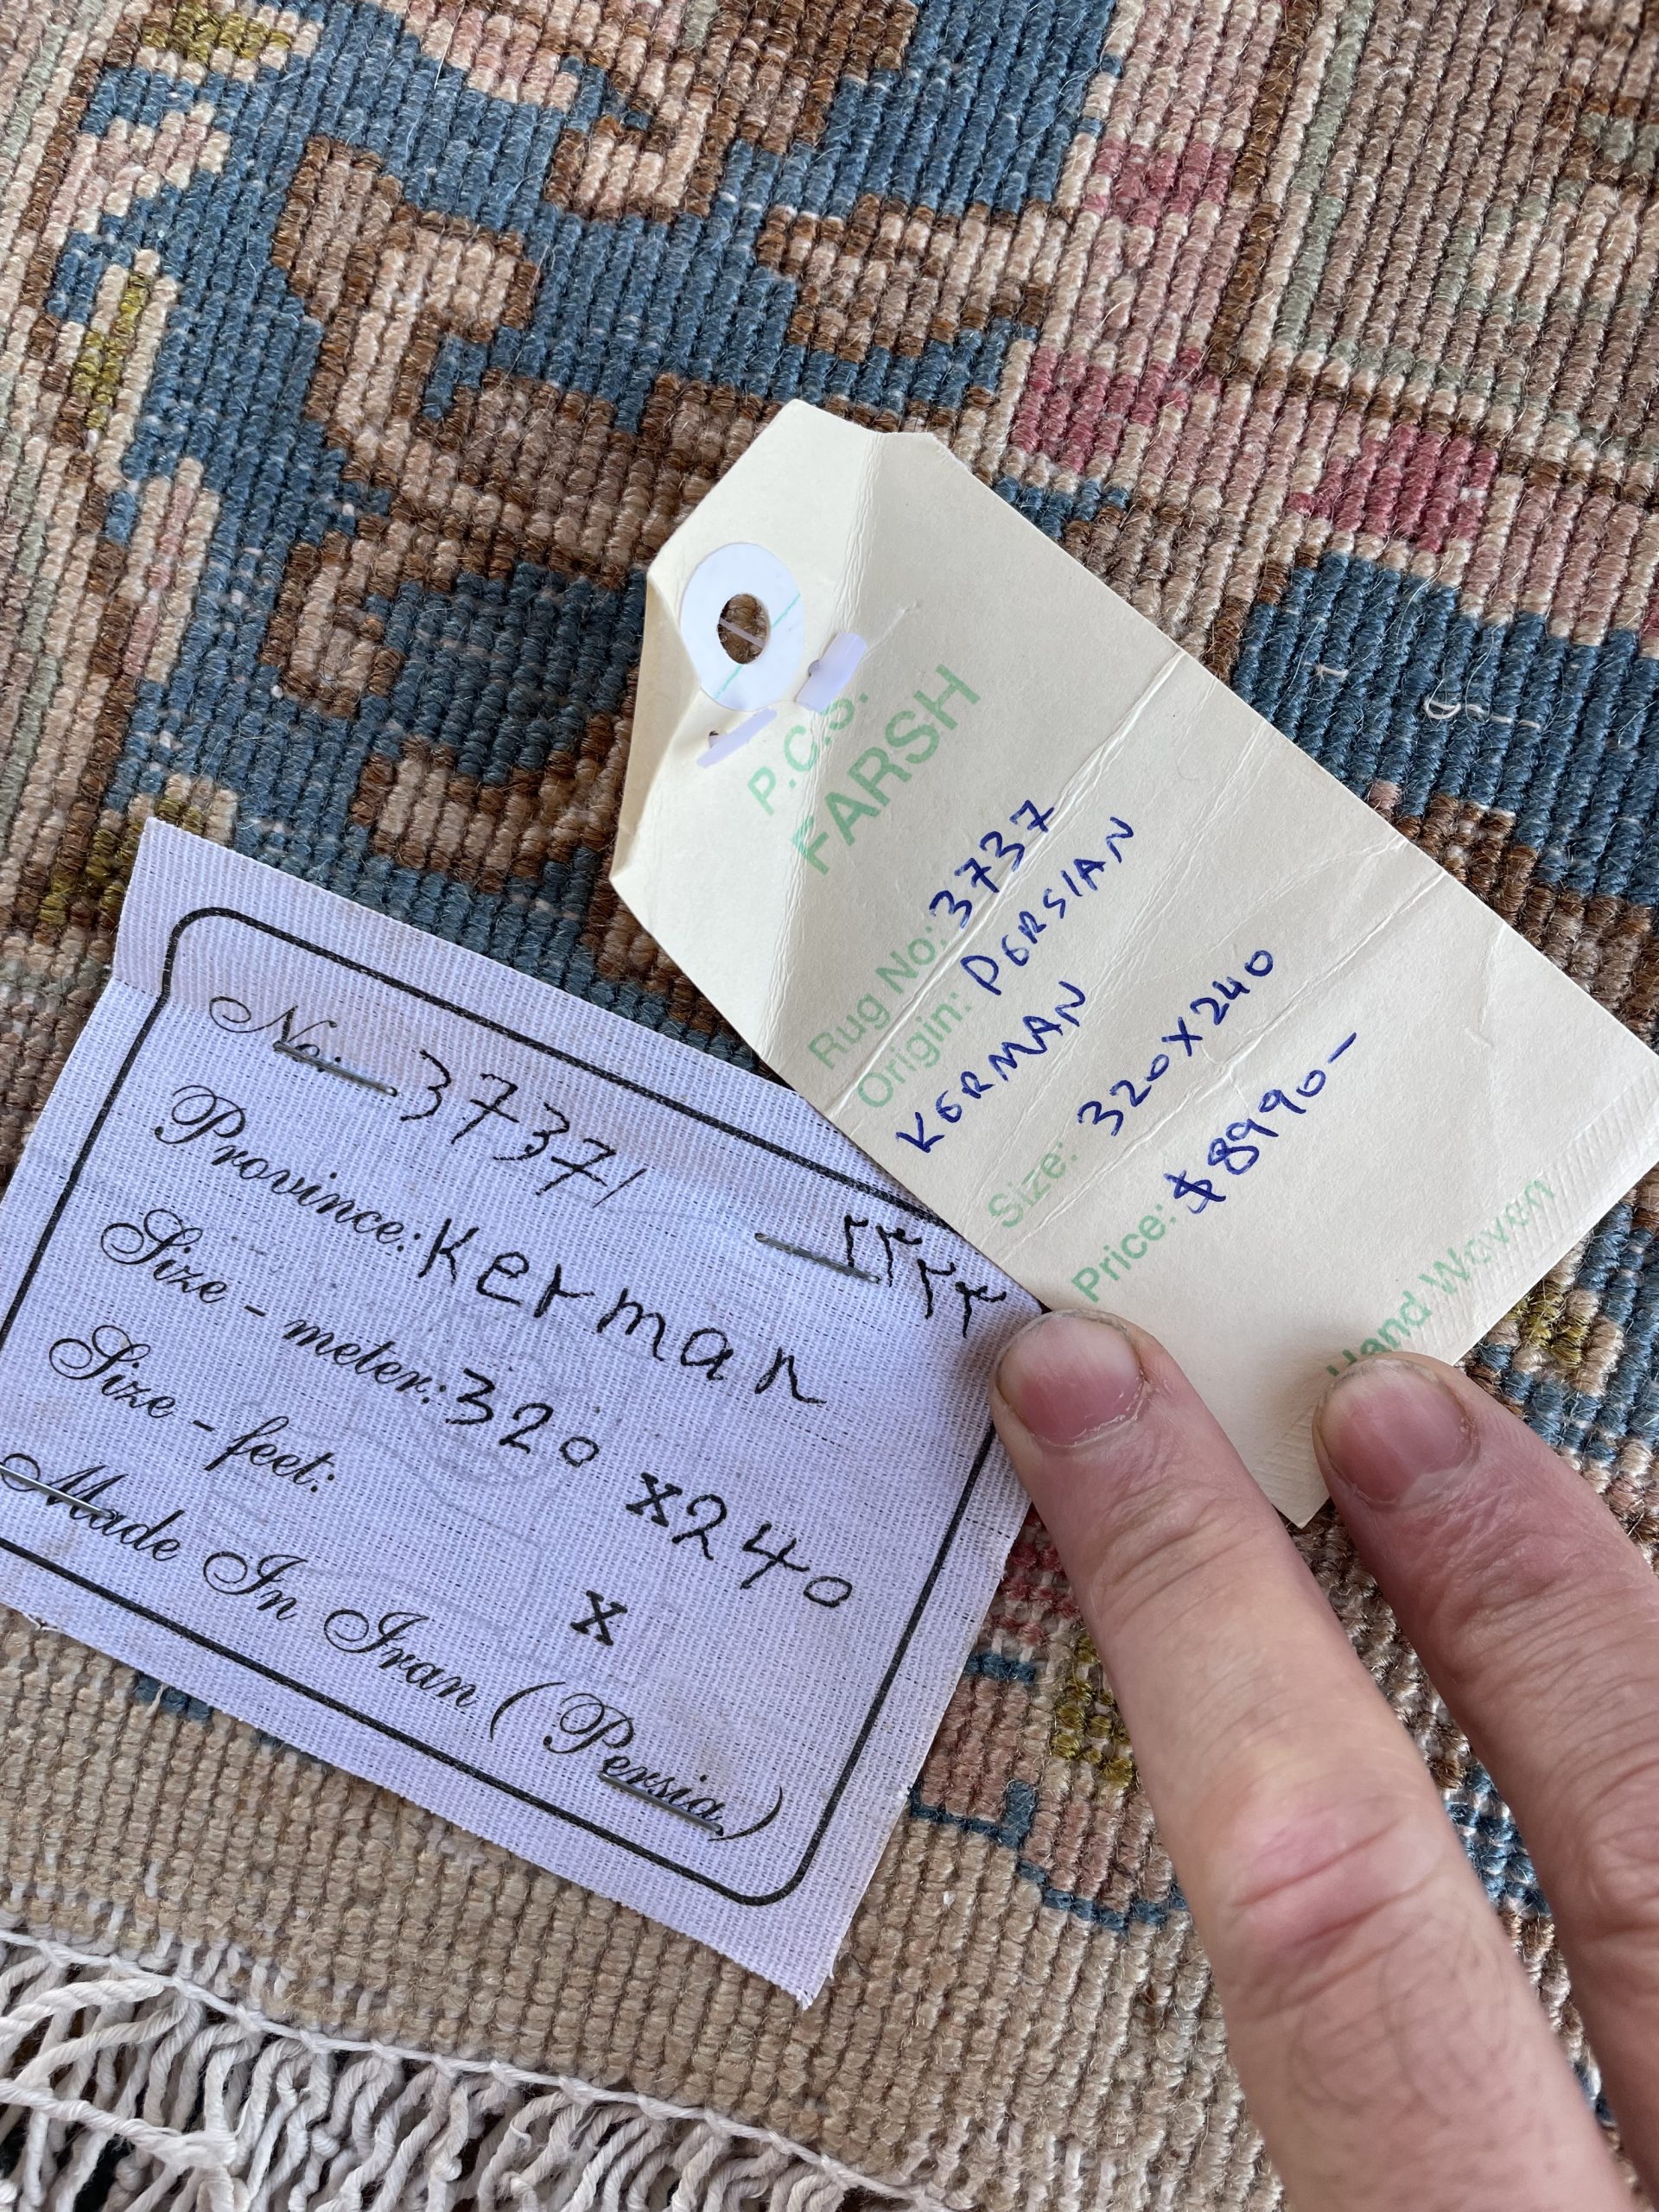 P.C.S.
FARSH
Rug No: 3737
Origin: PERSIAN
KERMAN
Size: 320X240
Price: $8990-
Hand Woven
No: 3737/
۳۷۳۷
Province: Kerman
Size - meter: 320 x240
Size - feet: x
Made In Iran (Persia)